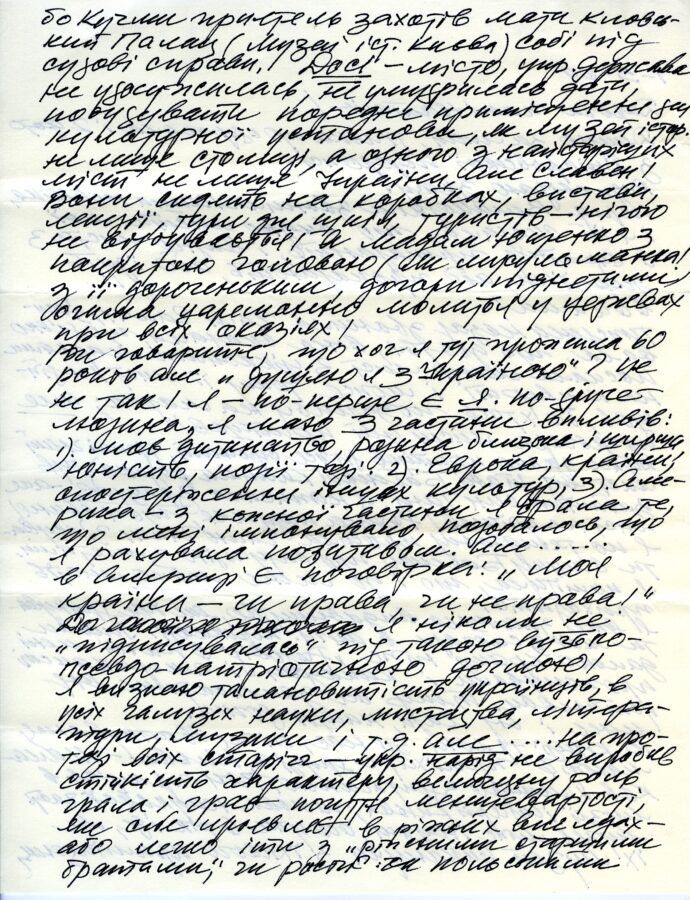 бо Кучми приятель захотів мати кловсь-
кий Палац (музей іст. Києва) собі під
судові справи. Досі – місто, укр. держава
не удосужилась, не умудрилась дати,
побудувати порядне приміщення для
культурної установи, як музей істор.
не лише столиці, а одного з найстаріших
міст не лише України, але Славян!
Вони сидять на коробках, вистави,
лекції, тури для шкіл, туристів – нічого
не відбувається! А мадам Ющенко з
покритою головою (як мусулманка!
з її дорогеньким догори піднятими
очима церемонно молиться у церквах
при всіх оказіях.
Ви говорите, що хоч я тут прожила 60
років але „душею я з Україною"? Це
не так! Я – по-перше є Я. по-друге
людина, я маю 3 частини впливів:
1) моє дитинство родина близька і ширша
юність, події тоді 2). Европа, країни,
спостереження інших культур, 3) Аме-
рика – з кожної частини я брала те,
що мені імпонувало, подобалось, що
я рахувала позитивом. але .....
в Америці є поговірка: „Моя
країна – чи права, чи не права!"
Я ніколи не
„підписувалась" під такою вузько-
псевдо-патріотичною догмою!
Я визнаю талановитість українців, в
усіх галузях науки, мистецтва, літера-
тури, музики і т.д. але ..... на про-
тязі всіх сторіч – укр. нарід не виробив
стійкість характеру, величезну роль
грала і грає почуття меншевартости,
яке себе проявляє в ріжних виглядах –
або легко іти з „рідними старшими
братами," чи росій. чи польськими